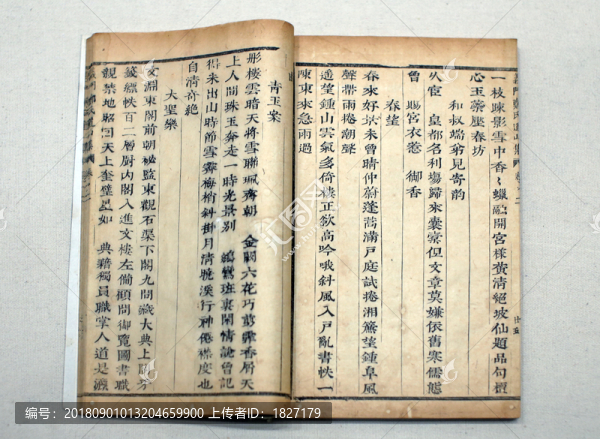 一枝疎影雪中香蠟融開宮樣黃清絕坡仙題品句檀
心玉蘂壓春坊
和叔端弟見寄韵
久宦 皇都名利塲歸來囊槖但文章莫嫌依舊寒儒態
曾 賜宮衣惹 御香
春望
春來好景未曾晴仲蔚蓬蒿滿戶庭試捲湘簾望鍾阜風
聲帶雨捲潮聲
遥望鍾山雲氣多倚樓正欲高吟哦斜風入戶亂書帙一
陳東來急雨過
青玉案
彤樓雲暗天將雪聯珮齊朝 金闕六花巧剪霏香屑天
上人間珠玉奔走一 時光景別 鵷鸞班裏閙情說曾記
衍未出山時節雪霽梅梢斜掛月清晩溪行神倦襟度也
自清竒絶
大聖樂
文淵東閣前朝秘監東觀石渠下閣九間藏大典上
籤軸帙百二層廚内閣入進文樓左備顧問御覽圖書職
親禁地昭囘天上奎壁星如 典籍獨員職掌人道是
编号：20180901013204659900 上传者ID：1827179